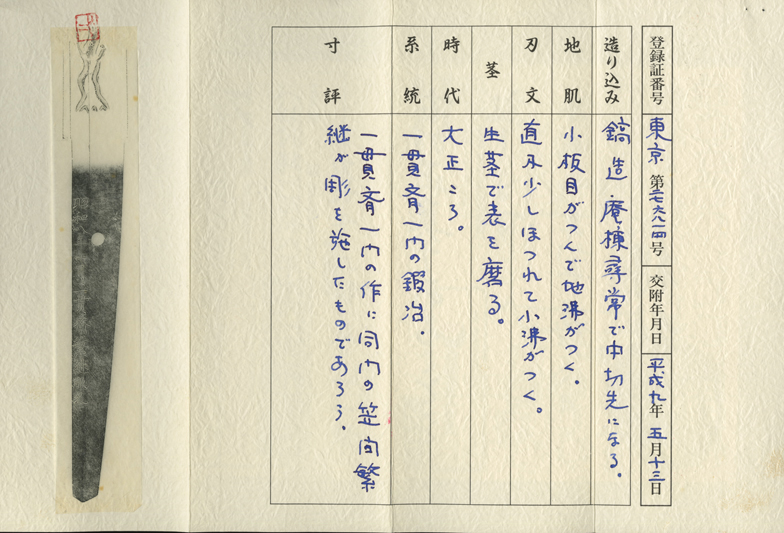 登録証番号 東京 第二七六八一四号 交附年月日 平成九年 五月十三日
造り込み 鎬造、庵棟尋常で中切先になる。
地肌 小板目がつんで地沸がつく。
刃文 直刃少しほつれて小沸がつく。
茎 生茎で表を磨る。
時代 大正ころ。
系統 一貫斉一門の鍛冶.
寸評 一貫斉一門の作に同門の笠間繁
継が彫を施したものであろう.